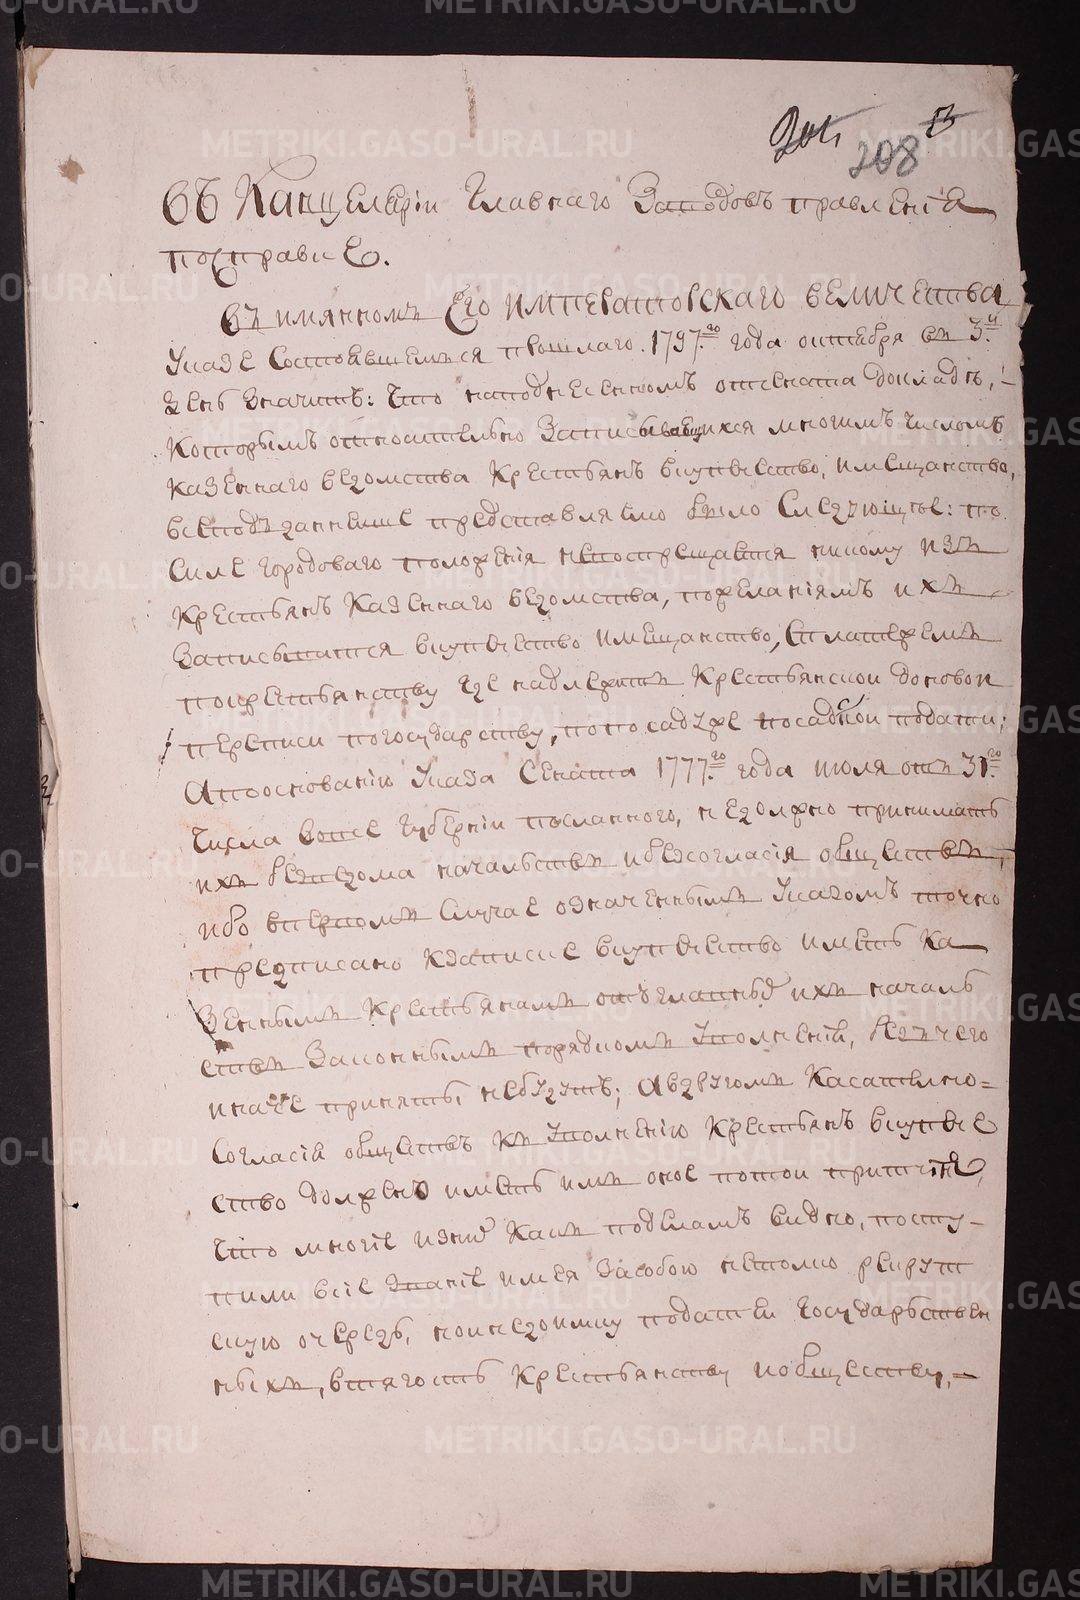 208
Въ Канцеляріи Главнаго Заводовъ правленія
посправке.
Въ имянномъ Его императорскаго величества
Указе Состоявшемъся прошлаго 1797.го года октября въ 3.й
день значитъ: Что наподнесенномъ отсената докладѣ,
Которымъ относительно Записывающихся многимъ числомъ
казеннаго ведомства Крестьянъ вкупечество, имещанство,
всеподданнеише представляемо было Следующее: по
Силе городоваго положения невоспрещается никому изъ
Крестьянъ Казеннаго ведомства, пожеланіямъ ихъ
Записыватся вкупечество имещанство, Сплатежемъ
покрестьянству где надлежитъ Крестьянскои доновои
переписи погосударству, нопосадуже посадской подати;
Апооснованію Указа Сената 1777.го года июля отъ 31.го
Числа вовсе Губерніи посланного, недолжно принимать
ихъ безведома началствъ ибезсогласія обществъ,
ибо впервомъ Случае означеннымъ Указомъ точно
предписано Кзаписке вкупечество иметь Ка
Зеннымъ Крестьянамъ отъглавныхъ ихъ началь
ствъ Законнымъ порядкомъ Уволнении, безъчего
иначе приняты небудутъ; Авдругомъ Касателно=
Согласія обществъ къ Уволнению Крестьянъ вкупече
ство должно иметь имъ оное потои причине,
Что многіе изних Какъ поделамъ видно, посту-
пили всие Звание имея Засобою нетокмо рекрут
скую очередь, ноинедоимку податеи Государствен
ныхъ, втягость Крестьянству иобществу,-
METRIKI.GASO-URAL.RU